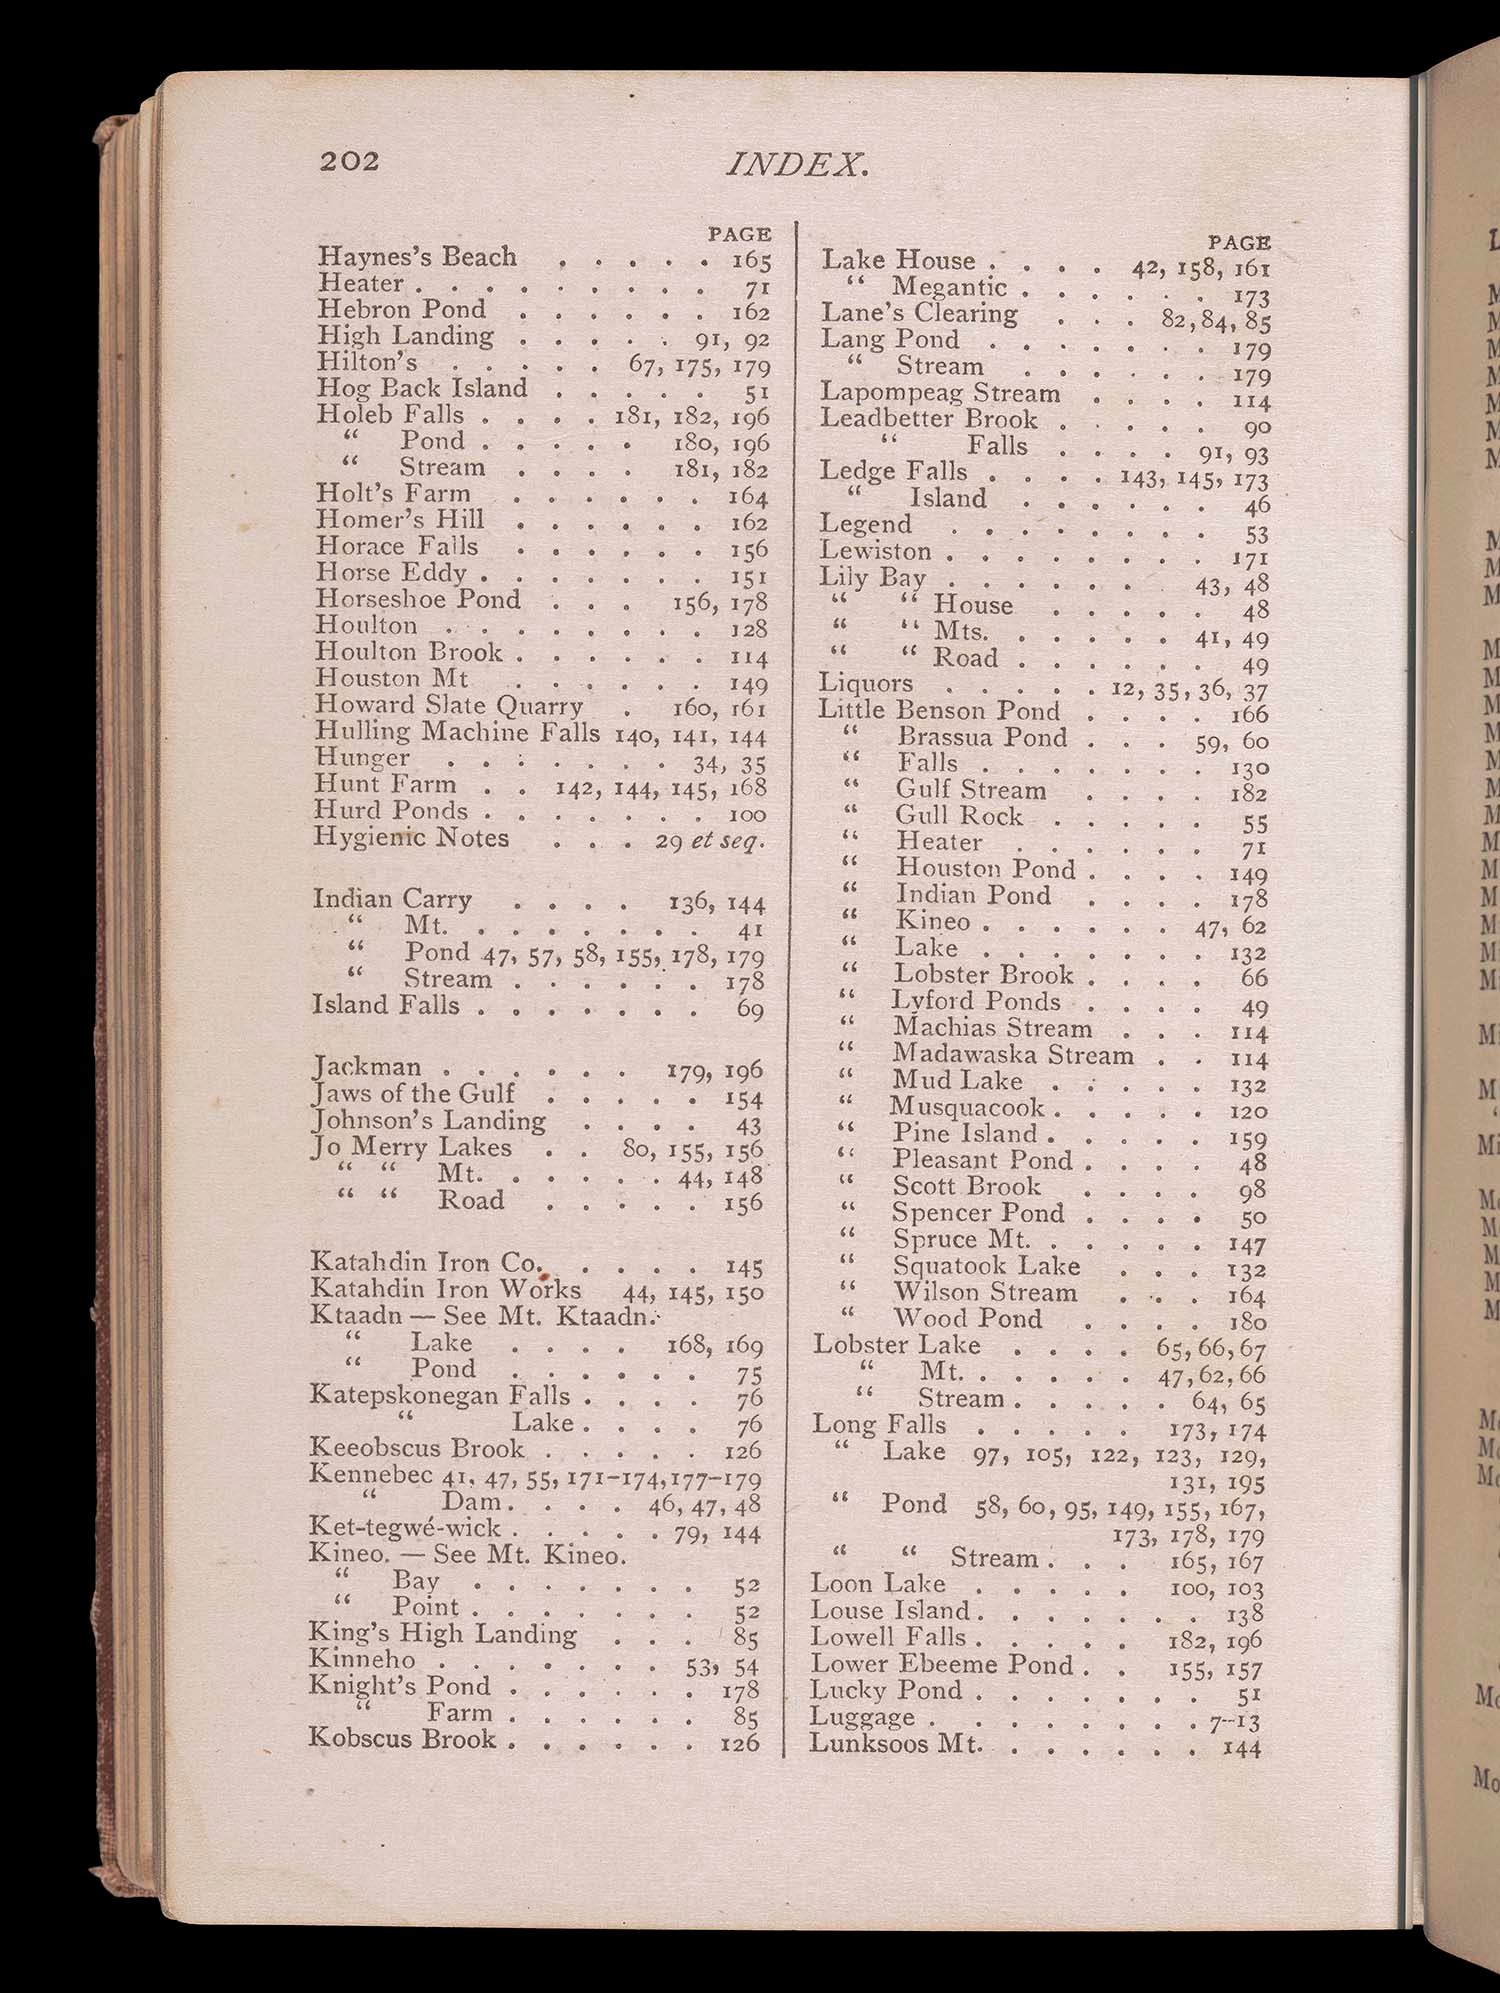 202
INDEX.
PAGE
Haynes's Beach . . . . . 165
Heater . . . . . . . . . 71
Hebron Pond . . . . . . 162
High Landing . . . . . 91, 92
Hilton's . . . . . 67, 175, 179
Hog Back Island . . . . . 51
Holeb Falls . . . . 181, 182, 196
“ Pond . . . . . 180, 196
“ Stream . . . . 181, 182
Holt's Farm . . . . . . 164
Homer's Hill . . . . . . 162
Horace Falls . . . . . . 156
Horse Eddy . . . . . . . 151
Horseshoe Pond . . . 156, 178
Houlton . . . . . . . . 128
Houlton Brook . . . . . . 114
Houston Mt . . . . . . 149
Howard Slate Quarry . 160, 161
Hulling Machine Falls 140, 141, 144
Hunger . . . . . . . 34, 35
Hunt Farm . . 142, 144, 145, 168
Hurd Ponds . . . . . . . 100
Hygienic Notes . . . 29 et seq.
Indian Carry . . . . 136, 144
“ Mt. . . . . . . . 41
“ Pond 47, 57, 58, 155, 178, 179
“ Stream . . . . . . 178
Island Falls . . . . . . . 69
Jackman . . . . . . 179, 196
Jaws of the Gulf . . . . . 154
Johnson's Landing . . . . 43
Jo Merry Lakes . . 80, 155, 156
“ “ Mt. . . . . . 44, 148
“ “ Road . . . . . 156
Katahdin Iron Co. . . . . 145
Katahdin Iron Works 44, 145, 150
Ktaadn — See Mt. Ktaadn.
“ Lake . . . . 168, 169
“ Pond . . . . . . 75
Katepskonegan Falls . . . . 76
“ Lake . . . . 76
Keeobscus Brook . . . . . 126
Kennebec 41, 47, 55, 171–174, 177–179
“ Dam . . . . 46, 47, 48
Ket-tegwé-wick . . . . . 79, 144
Kineo. — See Mt. Kineo.
“ Bay . . . . . . . 52
“ Point . . . . . . . 52
King's High Landing . . . 85
Kinneho . . . . . . . 53, 54
Knight's Pond . . . . . . 178
“ Farm . . . . . . 85
Kobscus Brook . . . . . . 126
PAGE
Lake House . . . . 42, 158, 161
“ Megantic . . . . . . 173
Lane's Clearing . . . 82, 84, 85
Lang Pond . . . . . . . 179
“ Stream . . . . . . 179
Lapompeag Stream . . . . 114
Leadbetter Brook . . . . . 90
“ Falls . . . . 91, 93
Ledge Falls . . . . 143, 145, 173
“ Island . . . . . . 46
Legend . . . . . . . . 53
Lewiston . . . . . . . . 171
Lily Bay . . . . . . . 43, 48
“ “ House . . . . . 48
“ “ Mts. . . . . . . 41, 49
“ “ Road . . . . . . 49
Liquors . . . . . 12, 35, 36, 37
Little Benson Pond . . . . 166
“ Brassua Pond . . . 59, 60
“ Falls . . . . . . . 130
“ Gulf Stream . . . . 182
“ Gull Rock . . . . . 55
“ Heater . . . . . . 71
“ Houston Pond . . . . 149
“ Indian Pond . . . . 178
“ Kineo . . . . . . 47, 62
“ Lake . . . . . . . 132
“ Lobster Brook . . . . 66
“ Lyford Ponds . . . . 49
“ Machias Stream . . . 114
“ Madawaska Stream . . 114
“ Mud Lake . . . . . 132
“ Musquacook . . . . . 120
“ Pine Island . . . . . 159
“ Pleasant Pond . . . . 48
“ Scott Brook . . . . 98
“ Spencer Pond . . . . 50
“ Spruce Mt. . . . . . 147
“ Squatook Lake . . . 132
“ Wilson Stream . . . 164
“ Wood Pond . . . . 180
Lobster Lake . . . . 65, 66, 67
“ Mt. . . . . . 47, 62, 66
“ Stream . . . . . 64, 65
Long Falls . . . . . 173, 174
“ Lake 97, 105, 122, 123, 129,
131, 195
“ Pond 58, 60, 95, 149, 155, 167,
173, 178, 179
“ “ Stream . . . 165, 167
Loon Lake . . . . . 100, 103
Louse Island . . . . . . . 138
Lowell Falls . . . . . 182, 196
Lower Ebeeme Pond . . 155, 157
Lucky Pond . . . . . . . 51
Luggage . . . . . . . . 7–13
Lunksoos Mt. . . . . . . 144